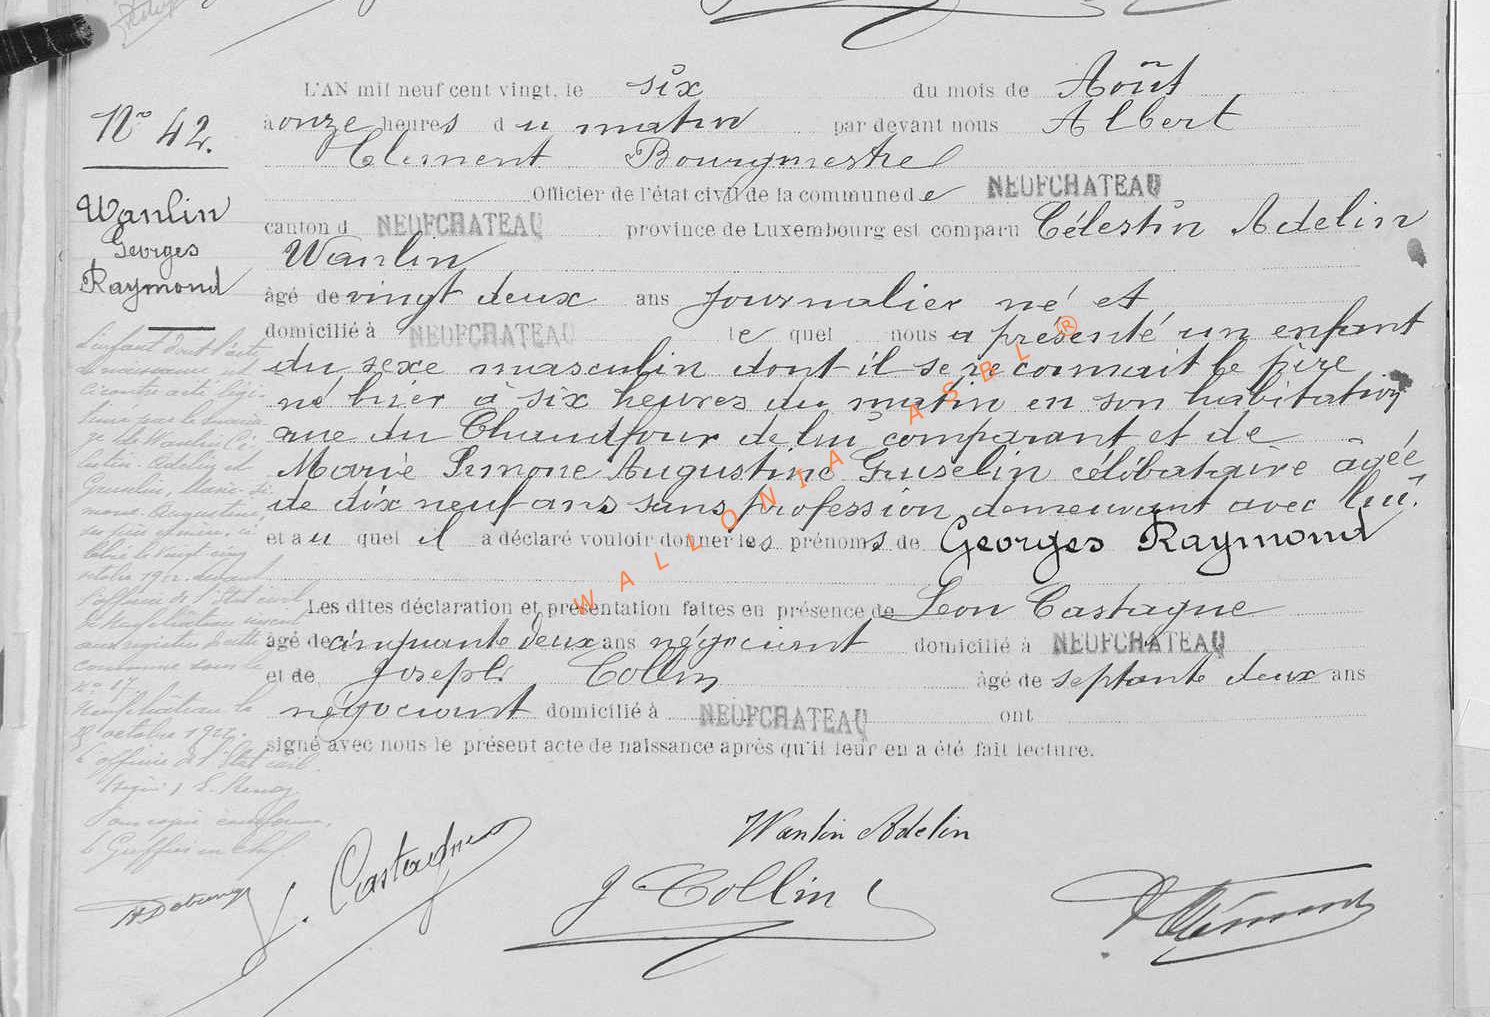 Nº 42.
Wanlin
Georges
Raymond
L'AN mil neuf cent vingt, le six du mois de Août
à onze heures du matin par devant nous Albert
Clément Bourgmestre
Officier de l'état civil de la commune de NEUFCHATEAU
canton d NEUFCHATEAU province de Luxembourg est comparu Célestin Adelin
Wanlin
âgé de vingt deux ans journalier né et
domicilié à NEUFCHATEAU le quel nous a présenté un enfant
du sexe masculin dont il se reconnait le père
né hier à six heures du matin en son habitation
rue du Chaudfour de lui comparant et de
Marie Simone Augustine Guselin célibataire âgée
de dix neuf ans sans profession demeurant avec lui.
et au quel il a déclaré vouloir donner les prénoms de Georges Raymond
Les dites déclaration et présentation faites en présence de Leon Castagne
âgé de cinquante deux ans négociant domicilié à NEUFCHATEAU
et de Joseph Collin âgé de septante deux ans
négociant domicilié à NEUFCHATEAU ont
signé avec nous le présent acte de naissance après qu'il leur en a été fait lecture.
L'enfant dont l'acte
de naissance est
ci contre acté, légi-
timé par le maria-
ge de Wanlin Cé-
lestin Adelin et
Guselin, Marie-Si-
mone Augustine,
ses père et mère, cé-
lébré le vingt cinq
octobre 1922 devant
l'officier de l'Etat civil
de Neufchâteau
aux registres de cette
commune sous le
Nº 37.
Neufchâteau le
octobre 1922.
L'officier de l'Etat civil.
(signé)
Pour copie conforme,
Le Greffier en chef.
Wanlin Adelin
L. Castagne
J Collin
A Clément
WALLONIA ASBL ®